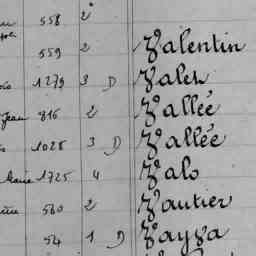 558 2
559 2 Valentin
1279 3 D Valen
Jean 816 2 Vallée
1028 3 D Vallée
Marie 1725 4 Valo
560 2 Vautier
54 1 D Vayva